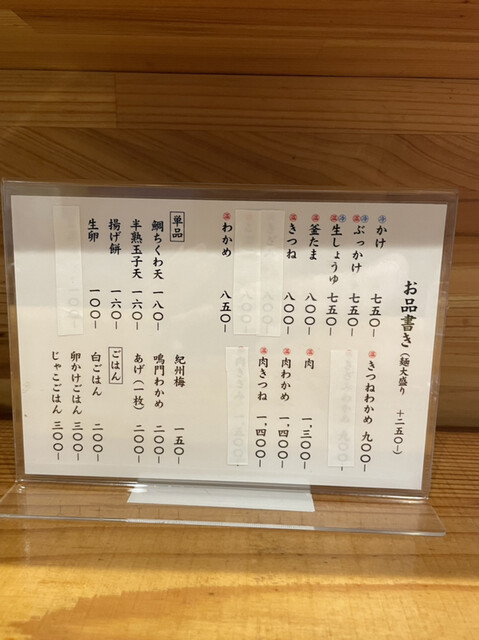 お品書き（麺大盛り 十二五〇ー）
冷 かけ 七五〇ー
温冷 ぶっかけ 七五〇ー
温冷 生しょうゆ 七五〇ー
温 釜たま 八〇〇ー
温 きつね 八〇〇ー
温 わかめ 八五〇ー
温 きつねわかめ 九〇〇ー
温 肉 一、三〇〇ー
温 肉わかめ 一、四〇〇ー
温 肉きつね 一、四〇〇ー
単品
鯛ちくわ天 一八〇ー
半熟玉子天 一六〇ー
揚げ餅 一六〇ー
生卵 一〇〇ー
紀州梅 一五〇ー
鳴門わかめ 二〇〇ー
あげ（一枚） 二〇〇ー
ごはん
白ごはん 二〇〇ー
卵かけごはん 三〇〇ー
じゃこごはん 三〇〇ー